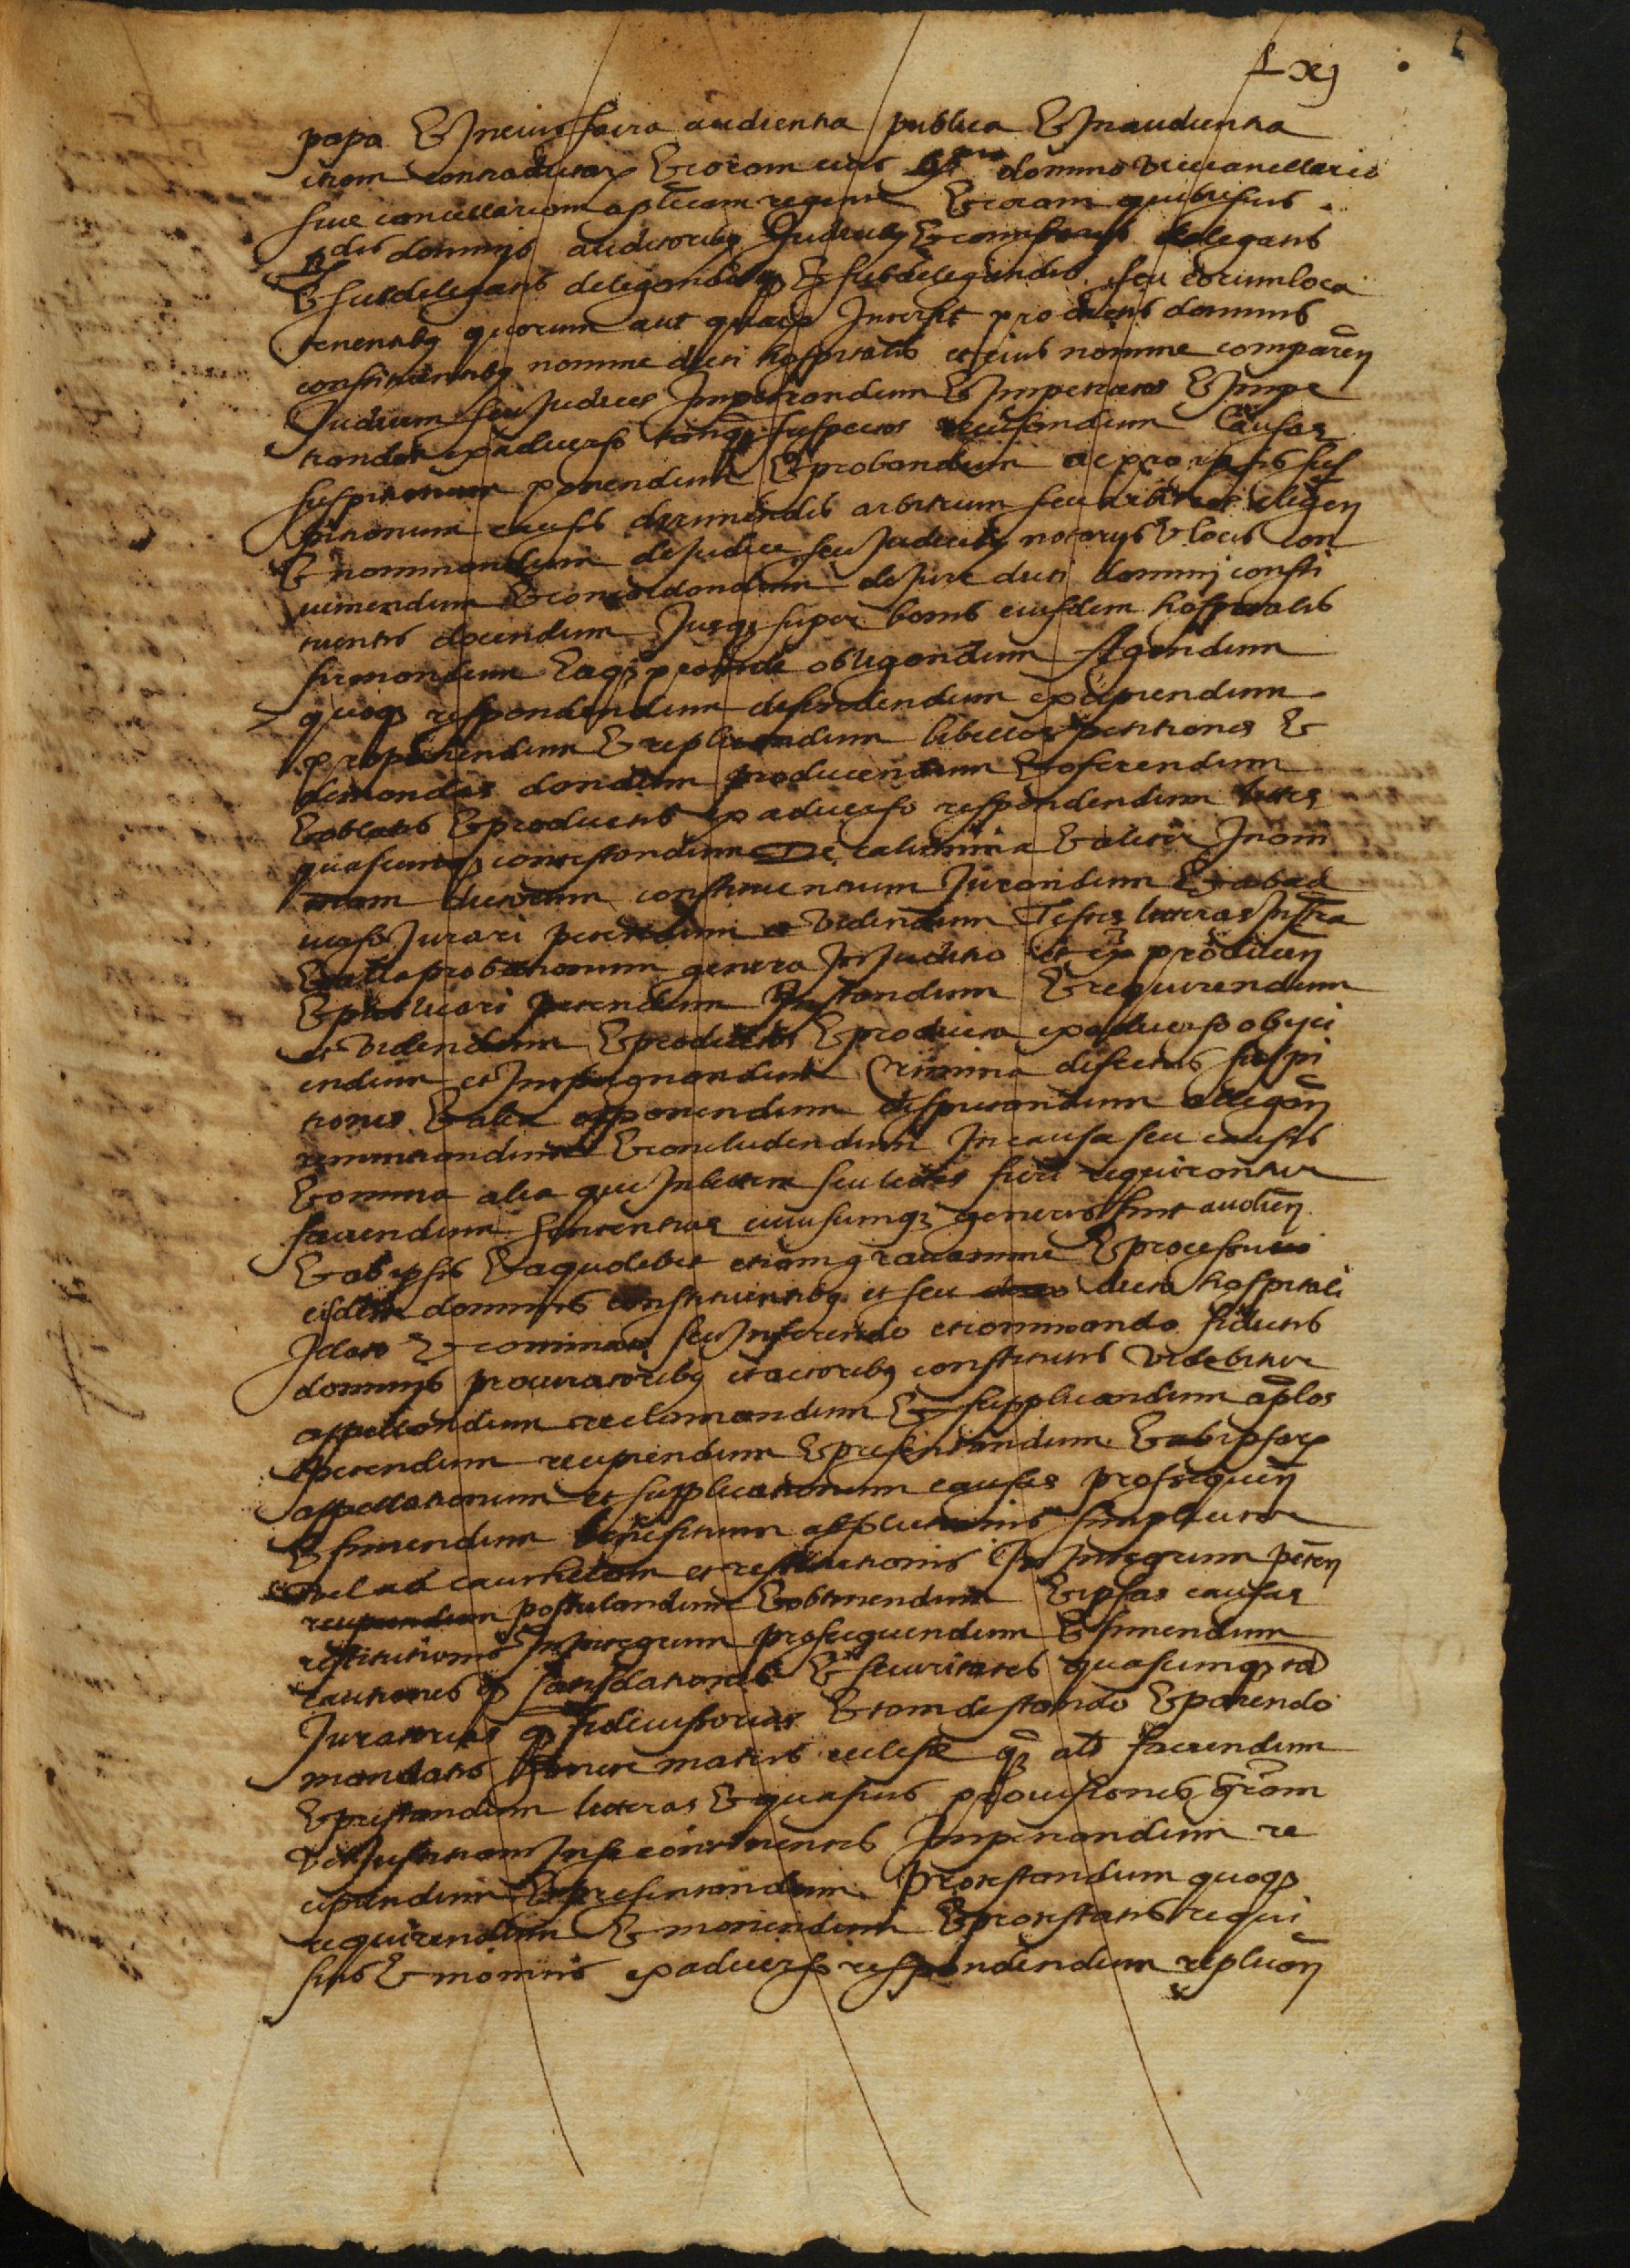 Lxj
papa Et In eius sacra audientia publica Et In audientia
ltrarum contradictar Et coram eius domino vicecancellario
sive cancellariam aplicam regente Et coram quibusvis
dominis auditoribus Judicibus Et comissariis delegatis
Et subdelegatis delegandisq Et subdelegandis seu eorum loca
tenentibus quorum aut Intersit pro dictis dominis
constituentibus nomine dicti hospitalis et eius nomine comparen
Judicem seu Judices Impetrandum Et Impetratos Et Impe
trandos ex adverso tanq suspectos recusandum Causas
suspitionum ponendum Et probandum ac pro ipsis sus
pitionum causis dirimendis arbitrum seu arbitros eligen
Et nominandum de Judice seu Judicibus notariis Et locis con
veniendum Et concordandum de Jure dicti domini consti
tuentis docendum Jusq super bonis eiusdem hospitalis
firmandum Eaq proinde obligandum Agendum
quoq respondendum defendendum excipiendum
proponendum Et replicandum libellos petitiones Et
demandas dandum producendum Et oferendum
Et oblatis Et productis ex adverso respondendum lites
quascunq contestandum De calumnia Et aliter In ani
mam dictorum constituentium Jurandum Et ab ad
verso Jurari petendum et videndum Testes litteras Instra
Et alia probationum genera In Juditio et ex producen
Et publicari petendum Instandum Et requirendum
et videndum Et productis Et producta ex adverso obiici
endum et Impugnandum Crimina defectus suspi
tiones Et alia opponendum disputandum allegan
renuntiandum Et concludendum In causa seu causis
Et omnia alia que In litem seu lites fieri requirantur
faciendum sententias cuiuscumq generis sint audien
Et ab ipsis Et a quolibet etiam gravamine Et processu
eisdem dominis constituentibus et seu dicto hospitali
Ilato Et cominato seu Inferendo et cominando si dictis
dominis procuratoribus et actoribus constitutis videbitur
appellandum reclamandum Et supplicandum aplos
petendum recipiendum Et presentandum Et ab ipsar
appellationum et supplicationum causas prosequen
Et finiendum benefitium absolutionis simpliciter
vel ad cauthelam et restitutionis In Integrum peten
postulandum Et obtinendum Et ipsas causas
restitutionis In Integrum prosequendum Et finiendum
cautiones q satisdationes Et securitates quascumq ta
Juratorias q fideiussorias Et tam de stando Et parendo
mandatis sancte matris eclesie q als faciendum
Et prestandum litteras Et quasvis provisiones gram
vel Justitiam In se continentes Impetrandum re
cipiendum Et presentandum Protestandum quoq
requirendum Et monendum Et protestatis requi
sitis Et monitis ex adverso respondendum replican